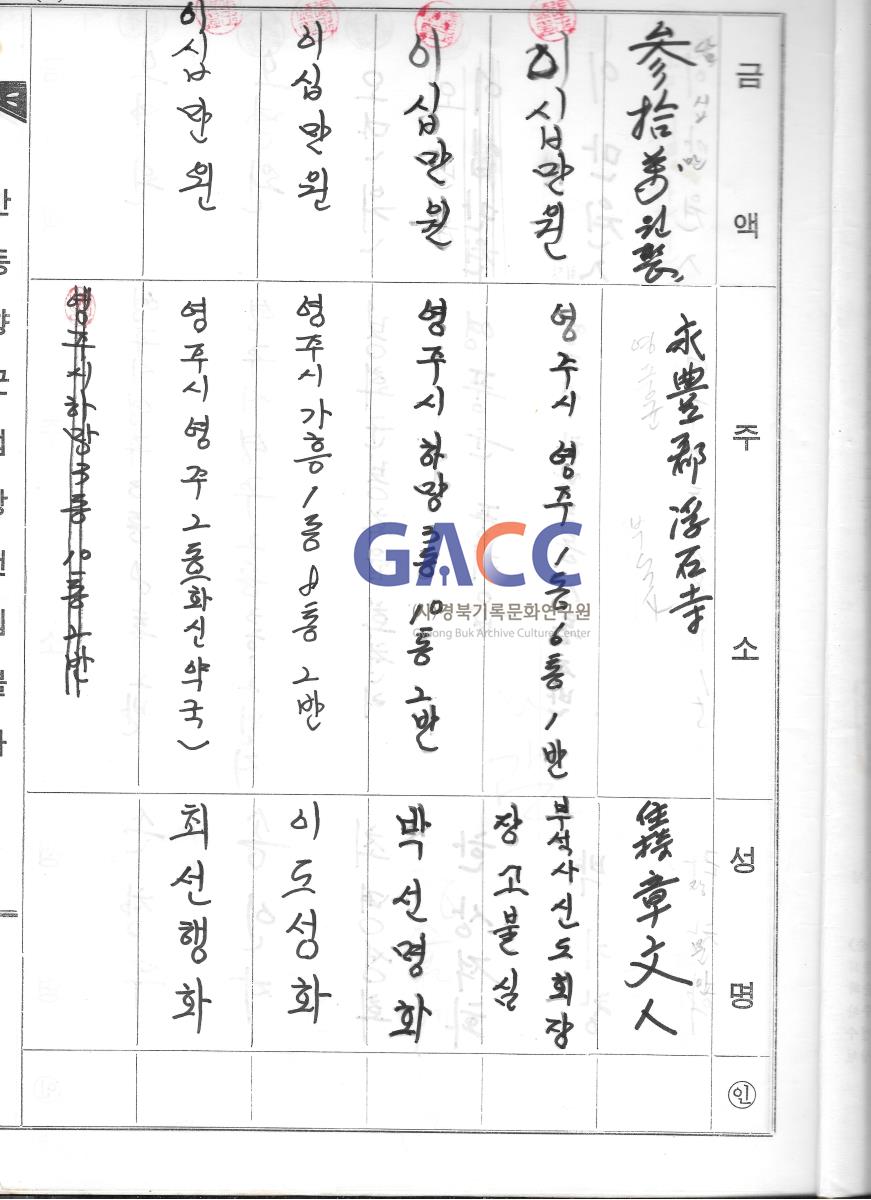 금액
주소
성명
인
參拾萬원整
永豊郡 浮石寺
住持 章文人
이십만원
영주시 영주1동 6통 1반
부석사신도회장
장고불심
이십만원
영주시 하망3동 10통 2반
박선명화
이십만원
영주시 가흥1동 8통 2반
이도성화
이십만원
영주시 영주2동(화신약국)
최선행화
영주시하망3동10통2반
GACC
(사)경북기록문화연구원
Gyeong Buk Archive Culture Center